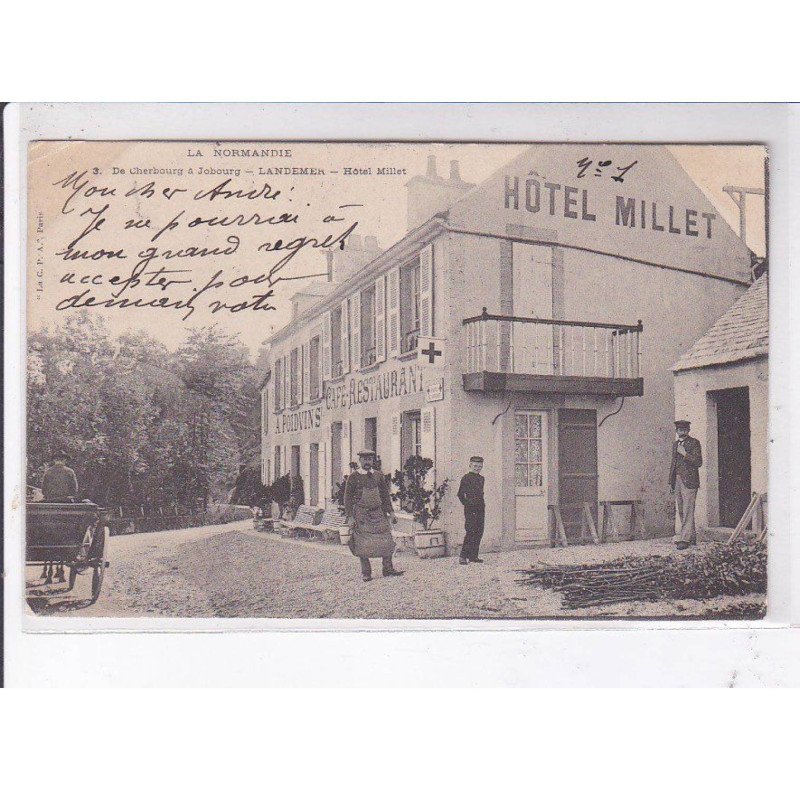 LA NORMANDIE
3. De Cherbourg à Jobourg — LANDEMER — Hôtel Millet
No 1
Mon cher André!
Je ne pourrai à
mon grand regret
accepter pour
demain votre
"La C. P. A." Paris
HÔTEL MILLET
CAFÉ-RESTAURANT
A. POIDVINS